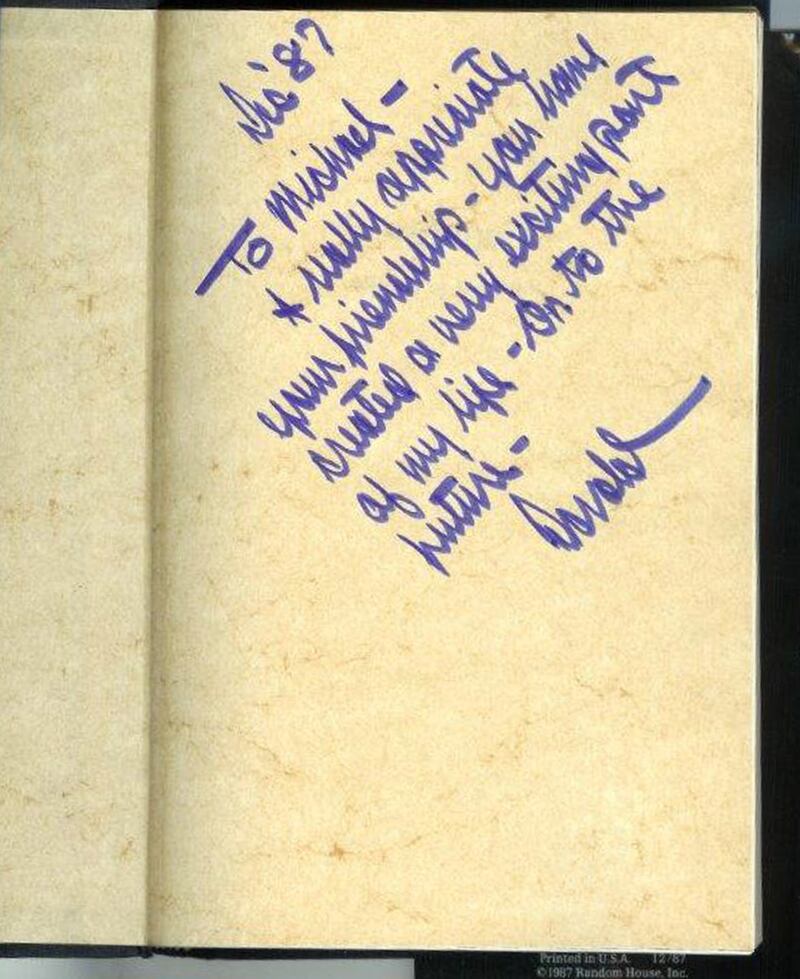 Dec '87
To Michael -
I really appreciate
your friendship - you have
created a very exciting part
of my life - on to the
future -
Donald
Printed in U.S.A. 12/87
©1987 Random House, Inc.